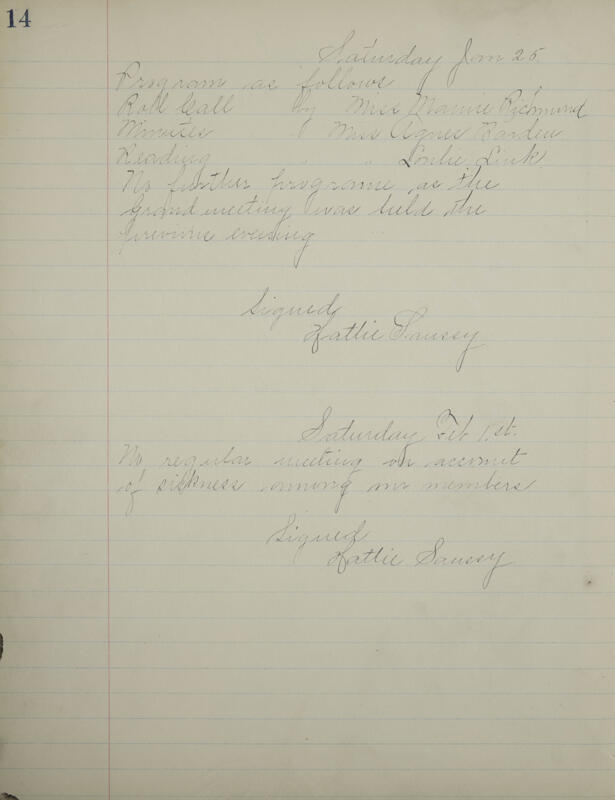 14
Saturday Jan 25.
Program as follows
Roll Call by Miss Mamie Richmond
Minutes " Miss Agnes Barden
Reading " " Link
No further programe as the
Grand meeting was held the
previous evening
Signed
Hattie Saussy
Saturday Feb 1st.
No regular meeting on account
of sickness among our members
Signed
Hattie Saussy